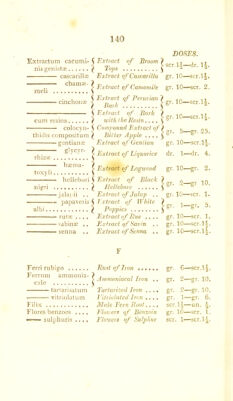 140
DOSES.
Extractum cacumi- { Extract of Broom } scr.1½—dr. 1½.
nis genistæ ...... { Tops ............
——— cascarillæ Extract of Cascarilla gr. 10—scr.1½.
——— chamæ- { Extract of Camomile gr. 10—scr. 2.
meli ............
——— cinchonæ { Extract of Peruvian } gr. 10—scr.1½.
Bark ............
——— { Extract of Bark } gr. 10—scr.1½.
cum resina ...... { with the Resin ....
——— colocyn- { Compound Extract of } gr. 5—gr. 25.
thidis compositum { Bitter Apple ....
——— gentianæ Extract of Gentian gr. 10—scr.1½.
——— glycyr- { Extract of Liquorice dr. 1—dr. 4.
rhizæ ............
——— hæma- { Extract of Logwood gr. 10—gr. 2.
toxyli ............
——— hellebori { Extract of Black } gr. 5—gr. 10.
nigri ............ { Hellebore ......
——— jalapii .. Extract of Jalap .. gr. 10—scr. 1.
——— papaveris { Extract of White } gr. 1—gr. 5.
albi ............ { Poppies ........
——— rutæ .... Extract of Rue .... gr. 10—scr. 1.
——— sabinæ .. Extract of Savin .. gr. 10—scr.1½.
——— senna .. Extract of Senna .. gr. 10—scr.1½.
F
Ferri rubigo ...... Rust of Iron ...... gr. 5—scr.1½.
Ferrum ammonia- { Ammoniacal Iron .. gr. 2—gr. 10.
cale ............
——— tartarisatum Tartarized Iron .... gr. 2—gr. 10.
——— vitriolatum Vitriolated Iron .... gr. 1—gr. 6.
Filix ............ Male Fern Root.... scr.1½—un. ½.
Flores benzoes .... Flowers of Benzoin gr. 10—scr. 1.
—— sulphuris .... Flowers of Sulphur scr. 1—scr.1½.